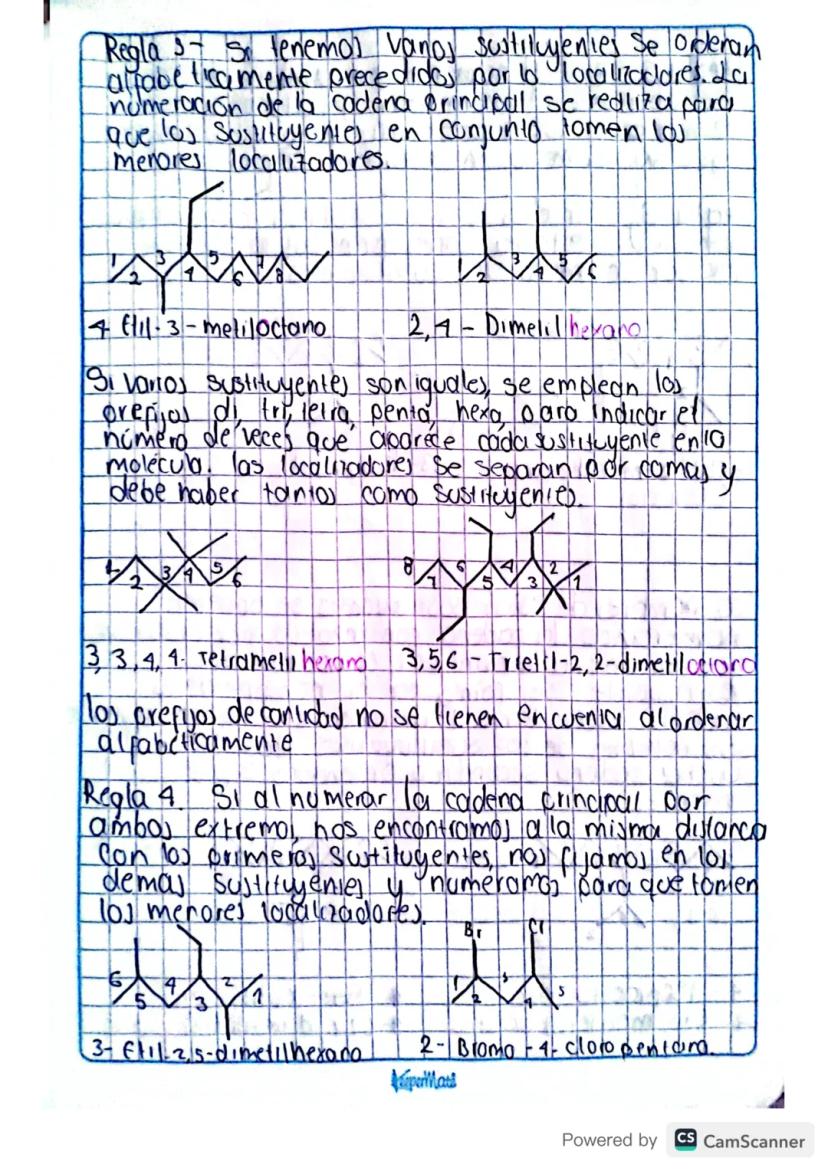 Regla 3- Si tenemos varios sustituyentes se ordenan
alfabéticamente precedidos por lo localizadores. La
numeración de la cadena principal se realiza para
que los sustituyentes en conjunto tomen los
menores localizadores.
1 2 3 4 5 6 7 8
1 2 3 4 5 6
4 Etil-3-metiloctano
2,4-Dimetilhexano
Si varios sustituyentes son iguales, se emplean los
prefijos di, tri, tetra, penta, hexa, para indicar el
número de veces que aparece cada sustituyente en la
molécula. las localizadores se separan por comas y
debe haber tantos como sustituyentes.
1 2 3 4 5 6
8 7 6 5 4 3 2 1
3,3,4,4-Tetrametilhexano
3,5,6-Trietil-2,2-dimetiloctano
los prefijos de cantidad no se tienen en cuenta al ordenar
alfabéticamente
Regla 4. Si al numerar la cadena principal por
ambos extremos, nos encontramos a la misma distancia
con los primeros sustituyentes, nos fijamos en los
demas sustituyentes y numeramos para que tomen
los menores localizadores.
Br Cl
6 5 4 3 2 1
1 2 3 4 5
3-Etil-2,5-dimetilhexano
2-Bromo-4-cloropentano.
Powered by CS CamScanner